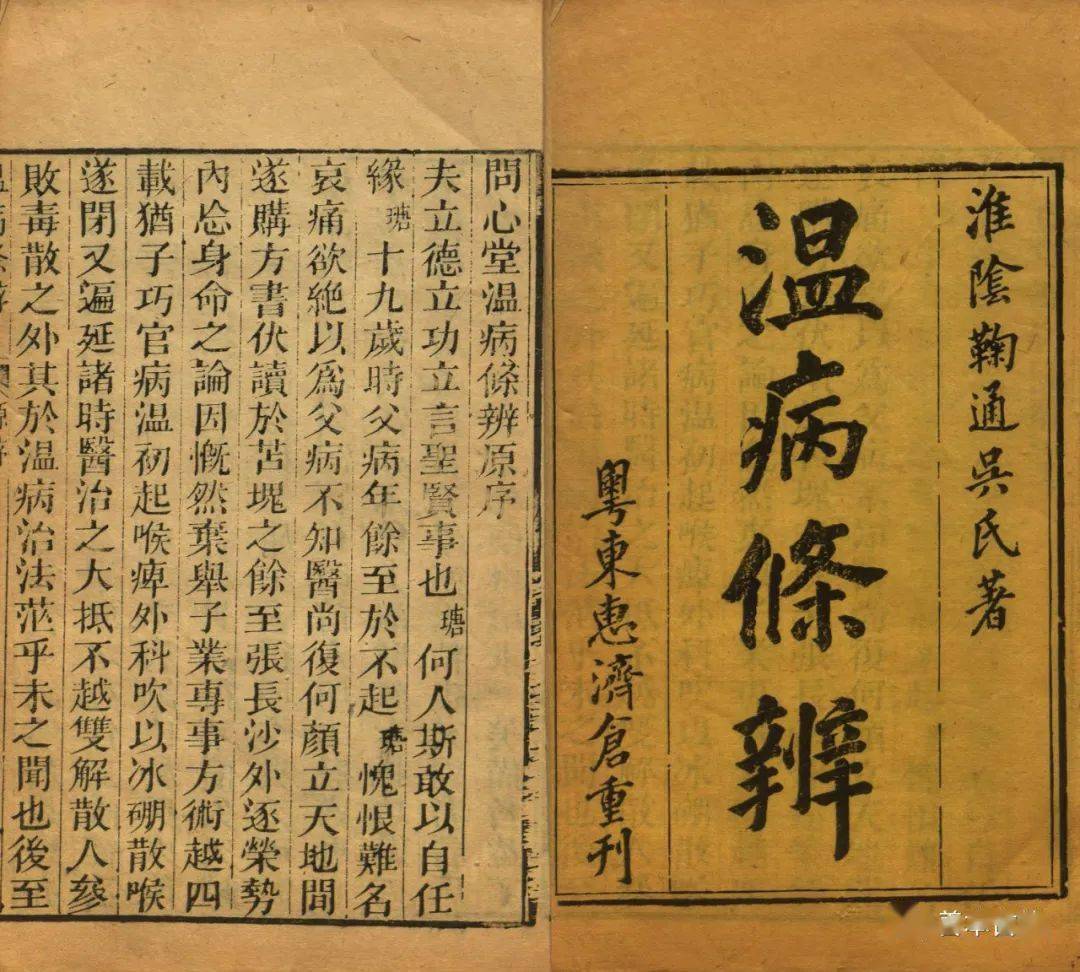 淮陰鞠通吳氏著
温病條辨
粵東惠濟倉重刊
問心堂温病條辨原序
夫立德立功立言聖賢事也瑭何人斯敢以自任
緣瑭十九歲時父病年餘至於不起瑭愧恨難名
哀痛欲絕以爲父病不知醫尚復何顔立天地間
遂購方書伏讀於苫塊之餘至張長沙外逐榮勢
內忘身命之論因慨然棄舉子業專事方術越四
載猶子巧官病温初起喉痺外科吹以冰硼散喉
遂閉又遍延諸時醫治之大抵不越雙解散人參
敗毒散之外其於温病治法茫乎未之聞也後至